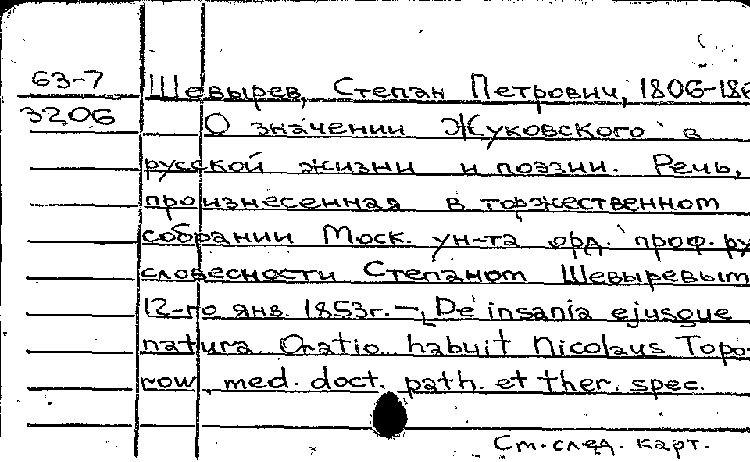 63-7
3206
Шевырев, Степан Петрович, 1806-186
О значении Жуковского в
русской жизни и поэзии. Речь,
произнесенная в торжественном
собрании Моск. ун-та орд. проф. ру
словесности Степаном Шевыревым
12-го янв. 1853г. — De insania ejusque
natura. Oratio habuit Nicolaus Topo-
row, med. doct. path. et ther. spec.
См. след. карт.